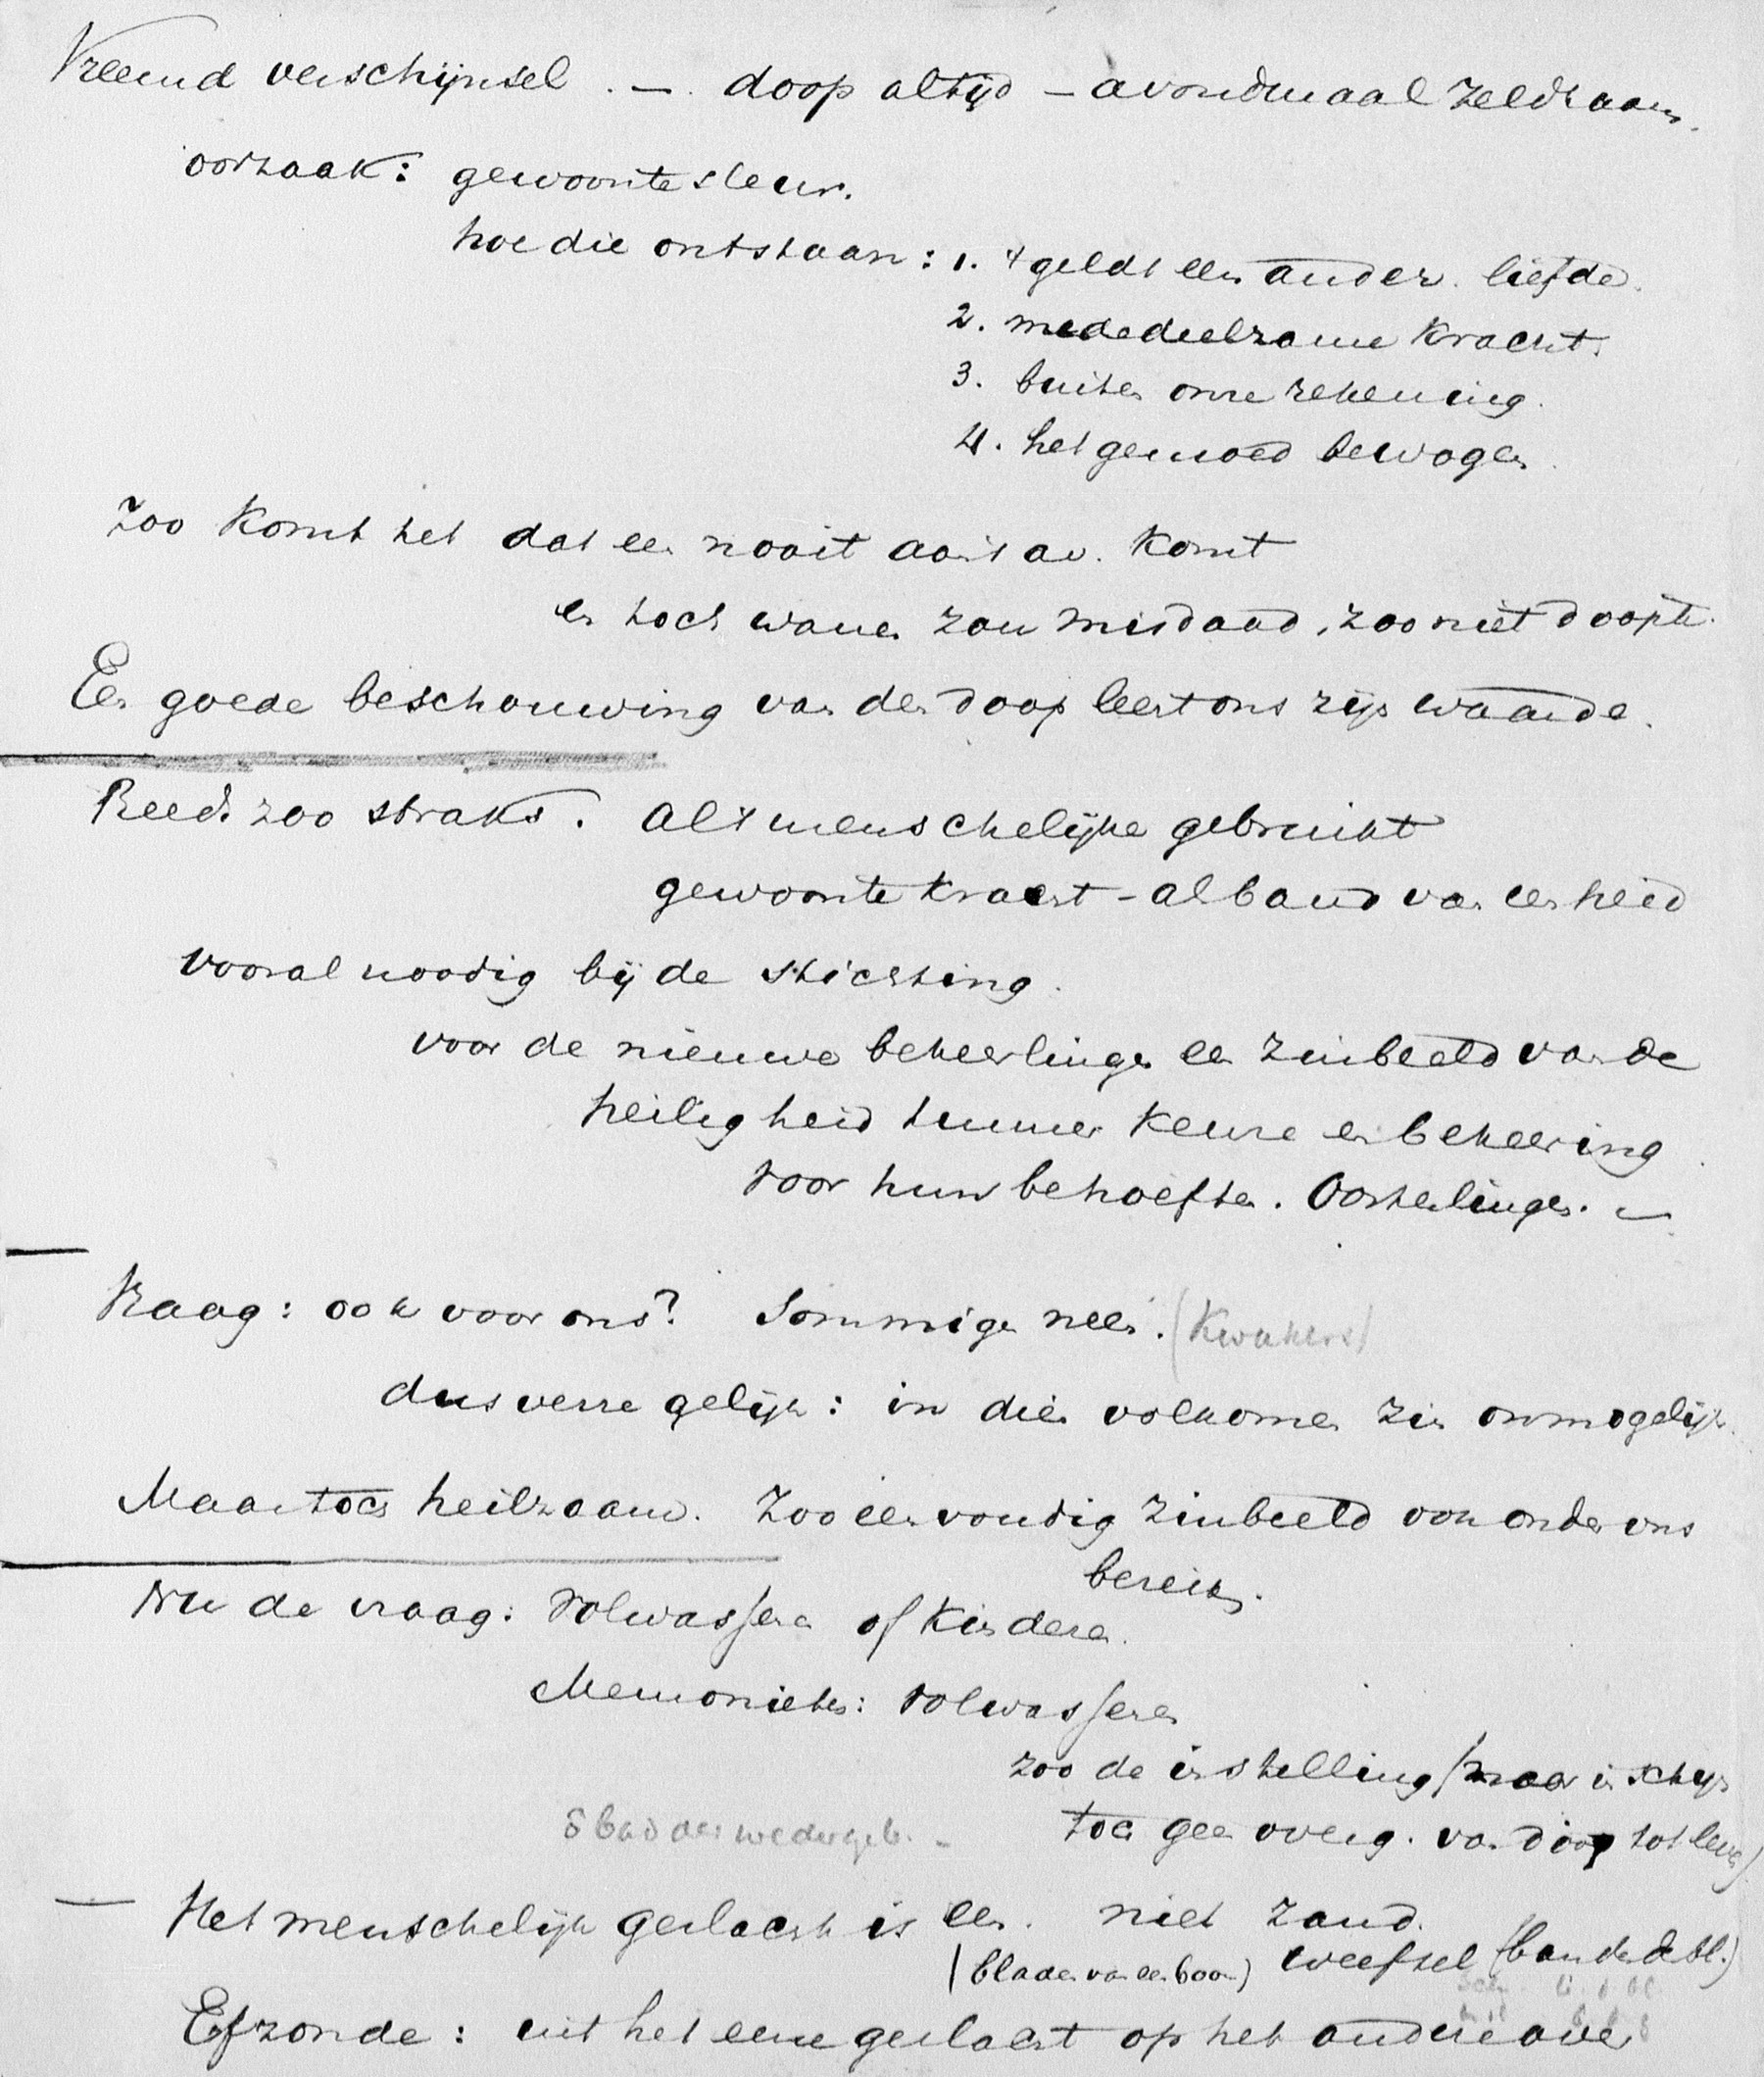 Vreemd verschijnsel. — doop altijd — avondmaal zeldzaam.
oorzaak: gewoonte sleur.
hoe die ontstaan: 1. 't geldt een ander. liefde.
2. mededeelzame kracht.
3. buiten onze rekening.
4. het gemoed bewogen.
Zoo komt het dat een nooit aan 't av. komt
en toch wanen zou misdaad, zoo niet doopte.
Een goede beschouwing van den doop leert ons zijn waarde.
Reeds zoo straks. Al 't menschelijke gebruikt
gewoonte kracht - al band van eenheid
vooral noodig bij de stichting.
voor de nieuwe bekeerlingen een zinbeeld van de
heiligheid hunner keuze en bekeering
voor hun behoeften. Oosterlingen. —
Vraag: ook voor ons? Sommigen neen. (Kwakers)
dusverre gelijk: in dien volkomen zin onmogelijk.
Maar toch heilzaam. Zoo eenvoudig zinbeeld ook onder ons
bereik.
Nu de vraag: Volwassenen of kinderen.
Mennonieten: volwassenen
zoo de instelling (maar in schijn
toch geen overg. van doop tot leven)
bad der wedergeb. -
— Het menschelijk geslacht is een. niet zand.
(bladen van een boom) weefsel (band d. bl.)
Erfzonde: uit het eene geslacht op het andere over